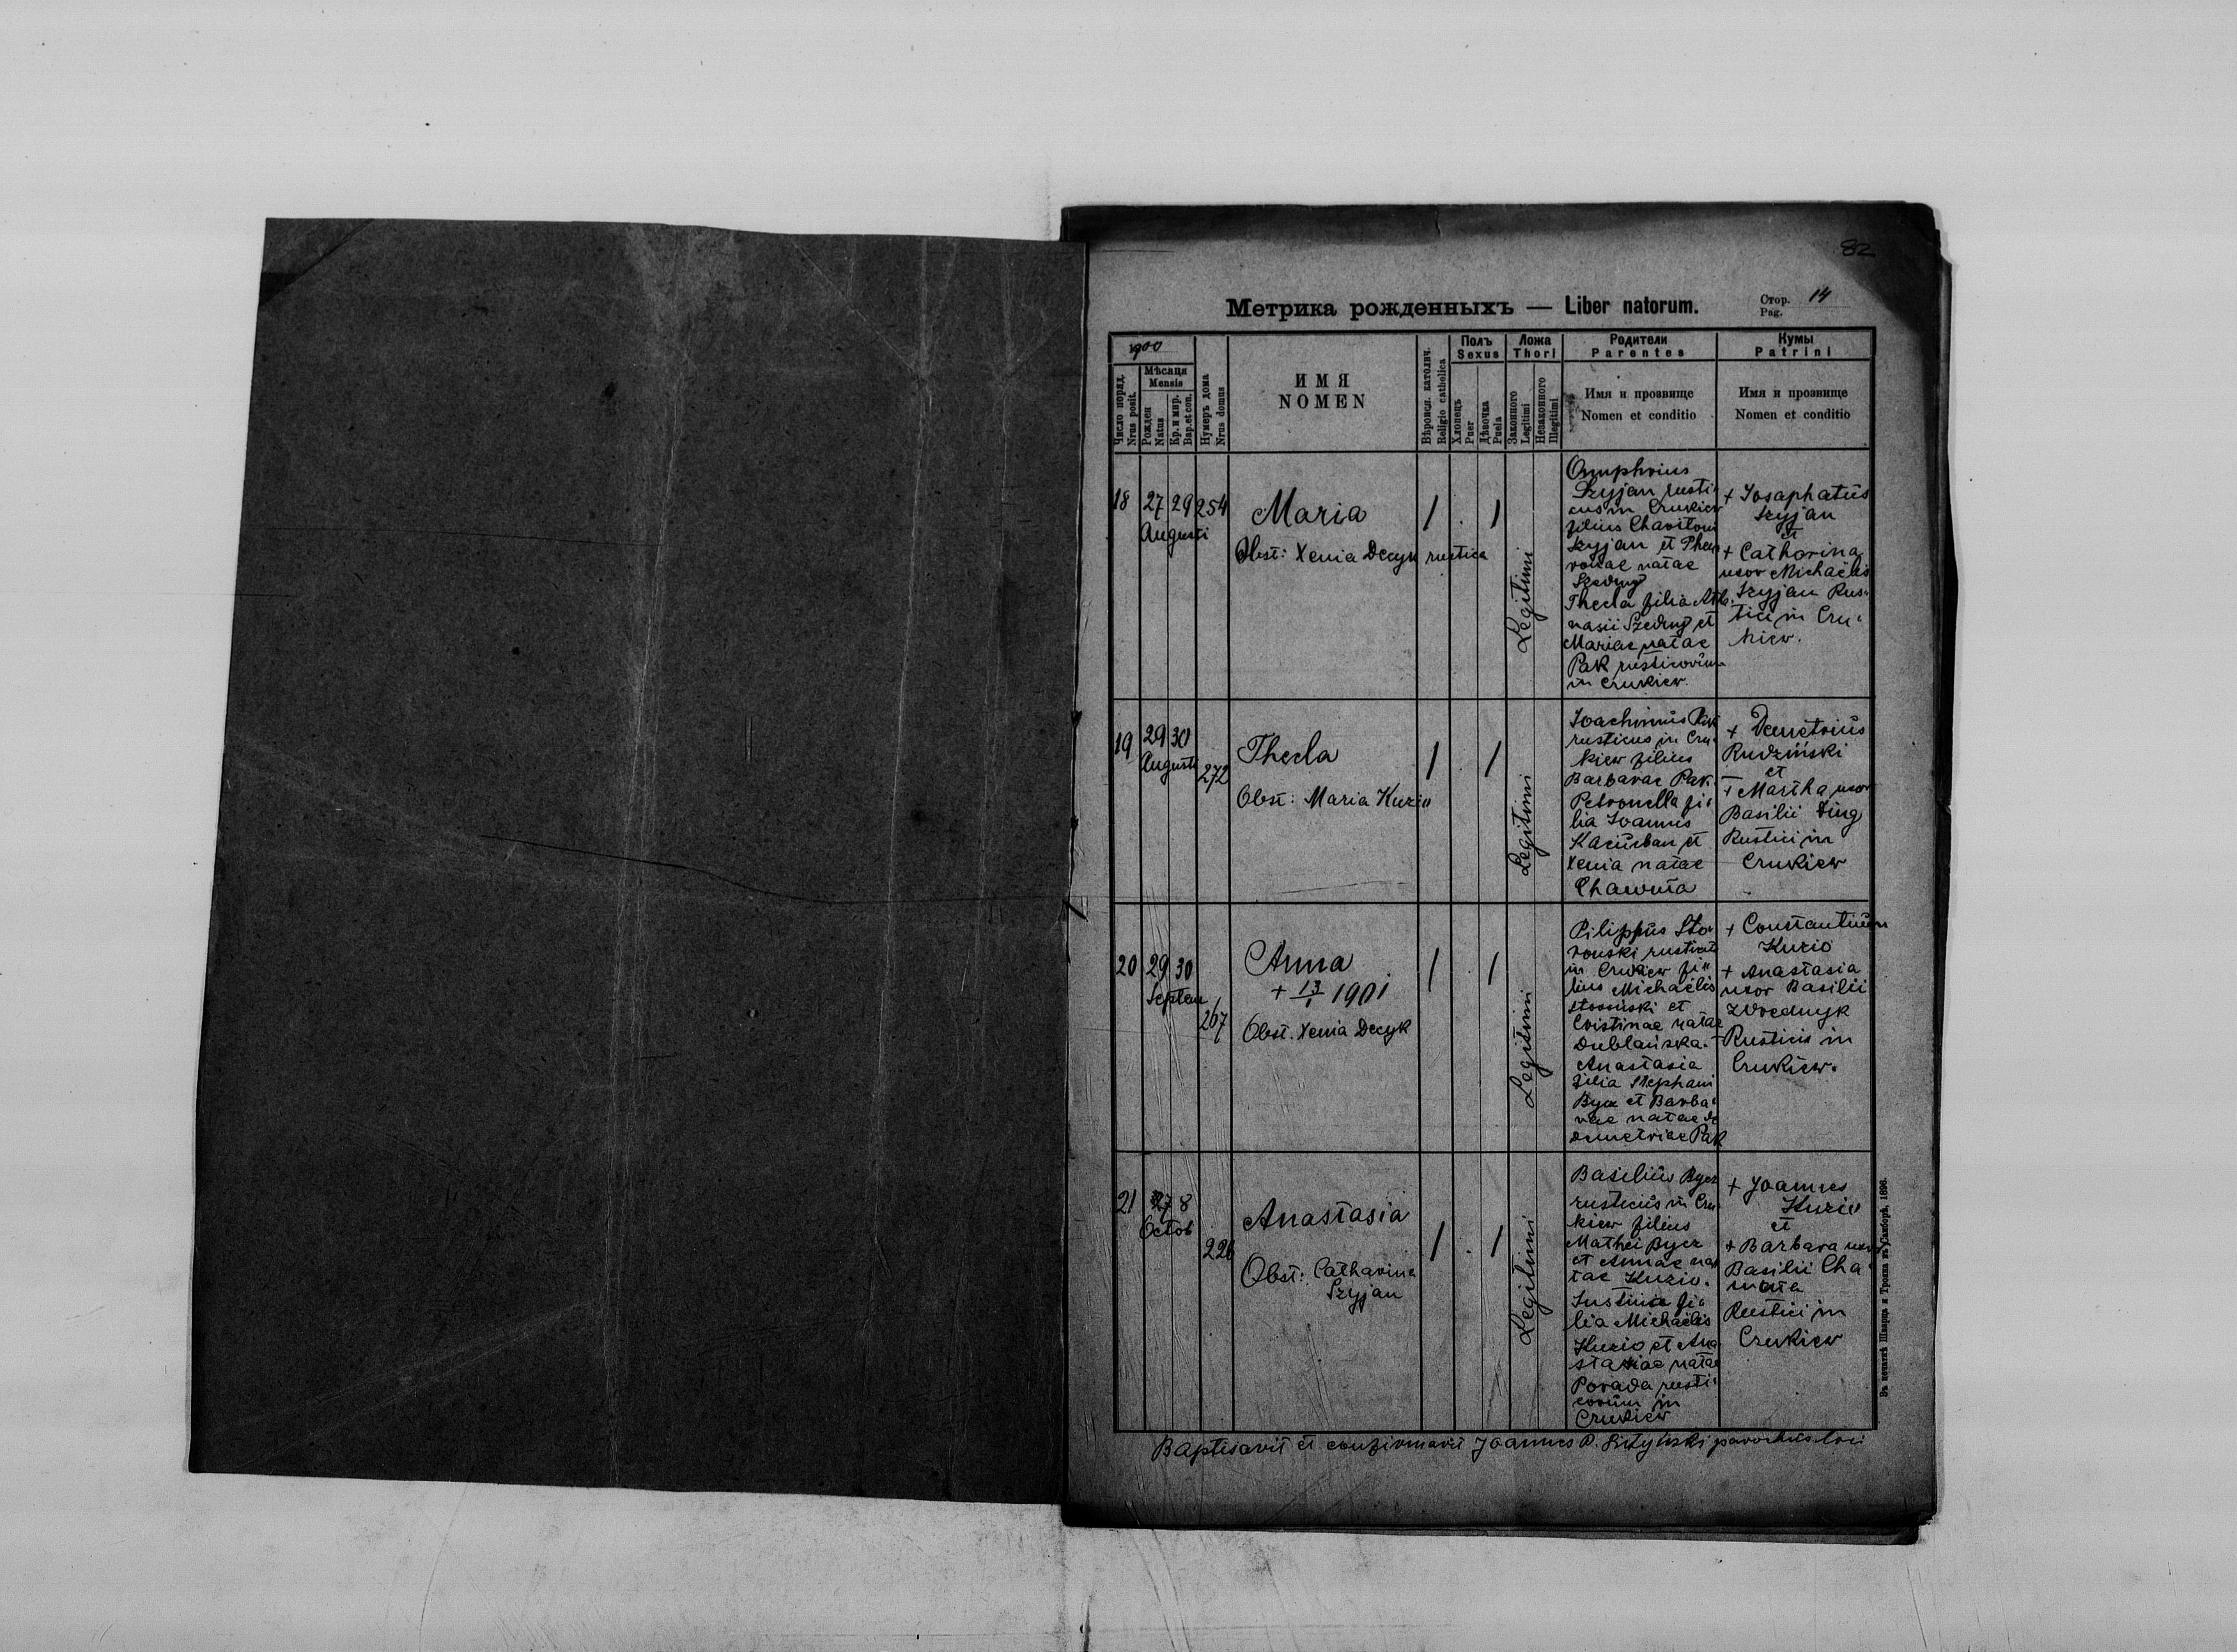 82
Метрика рожденныхъ — Liber natorum.
Стор. 14
Pag.
1900
Число поряд.
Nrus posit.
Мѣсяця
Mensis
Рожден
Natus
Кр. и мир.
Bap. et con.
Нумеръ дома
Nrus domus
ИМЯ
NOMEN
Вѣроисп. католич.
Religio catholica
Полъ
Sexus
Хлопецъ
Puer
Дѣвочка
Puela
Ложа
Thori
Законного
Legitimi
Незаконного
Illegitimi
Родители
Parentes
Имя и прозвище
Nomen et conditio
Кумы
Patrini
Имя и прозвище
Nomen et conditio
18 27 29 254
Augusti
Maria
Obst: Xenia Decyk rustica
1 . 1
Legitimi
Onuphrius
Szyjan rusti
cus in Crukiew
filius Charitoni
Szyjan et
natae
Thecla filia Ath
nasii et
Mariae natae
Pak rusticorum
in Crukiew.
+ Josaphatus
Szyjan
et
+ Catharina
uxor Michaëlis
Szyjan Rus
tici in Cru
kiew.
19 29 30
Augusti 272
Thecla
Obst: Maria Kuzio
1 . 1
Legitimi
Joachimus Pak
rusticus in Cru
kiew filius
Barbarae Pak
Petronella fi
lia Joannis
et
Xenia natae
+ Demetrius
Rudziński
et
+ Martha uxor
Basilii
Rustici in
Crukiew
20 29 30
Septem
267
Anna
+ 13/1 1901
Obst. Xenia Decyk
1 . 1
Legitimi
Pilippus Sto
ronski
in Crukiew fi
lius Michaëlis
et
Cristinae natae
Dublańska.
Anastasia
filia Stephani
et Barba
rae natae de
Demetriae Pak
+ Constantinus
Kuzio
+ Anastasia
uxor Basilii
Rusticis in
Crukiew.
21 8
Octob
226
Anastasia
Obst: Catharina
Szyjan
1 . 1
Legitimi
Basilius Bycz
rusticus in Cru
kiew filius
Mathei Bycz
et Annae na
tae Kuzio.
Justina fi
lia Michaëlis
Kuzio et Ana
stasiae natae
Porada rusti
corum in
Crukiew
+ Joannes
Kuzio
et
+ Barbara uxor
Basilii Cha
Rustici in
Crukiew
Baptisavit et confirmavit Joannes parochus loci
Въ печатнѣ Шварца и Трояна въ Самборѣ, 1896.